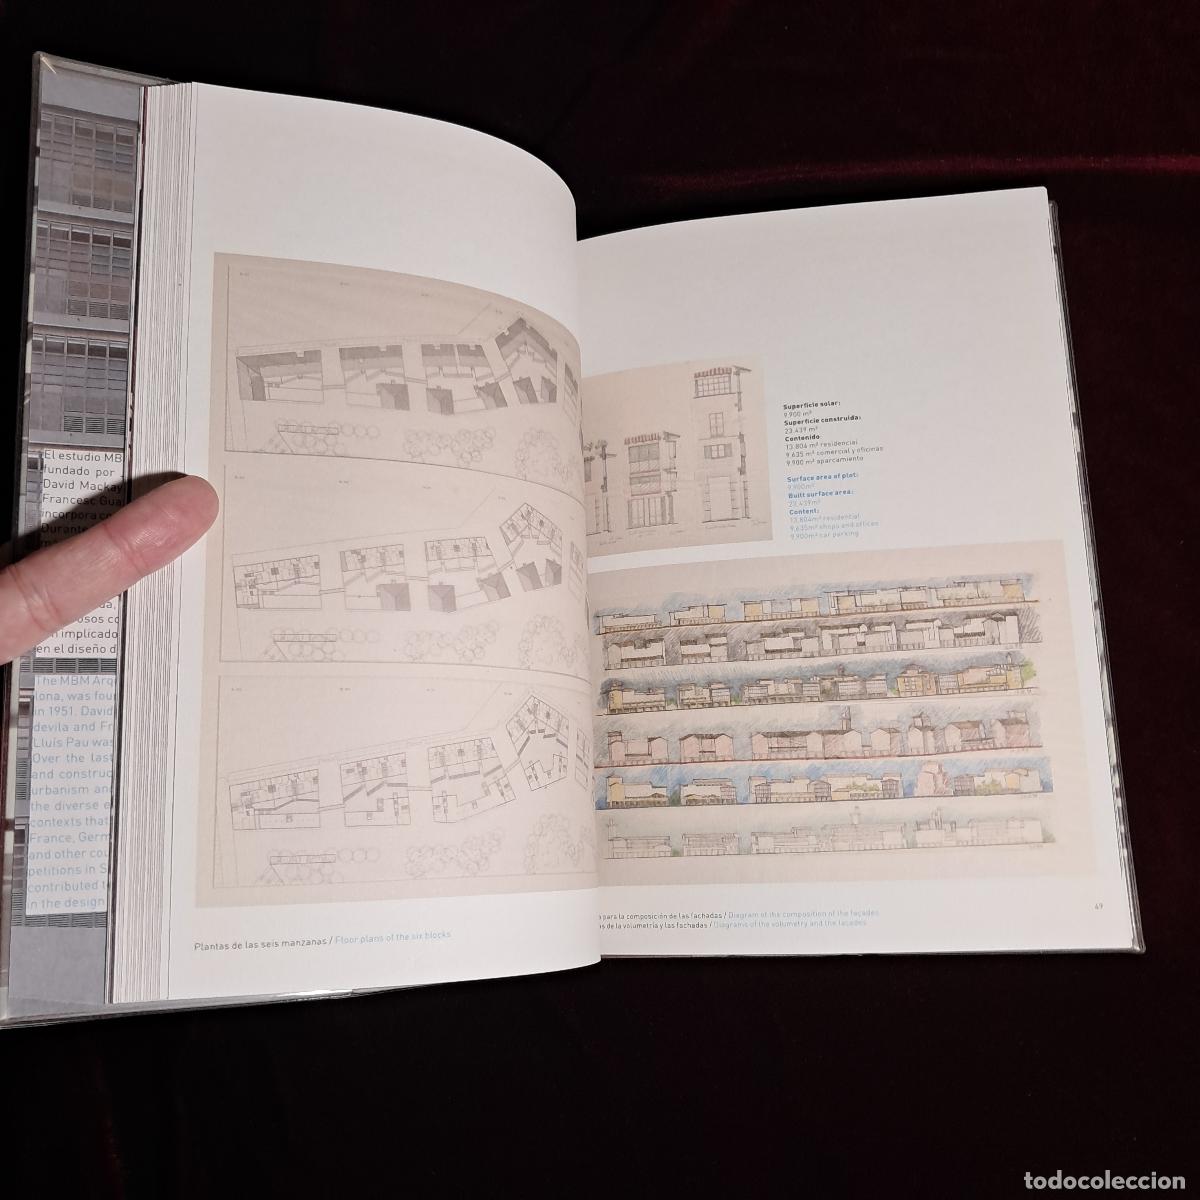 El estudio MB
fundado por
David Mackay
Francesc Gua
incorpora co
Durante
osos co
implicado
en el diseño d
The MBM Arq
lona, was four
in 1951. David
devila and Fr
Lluís Pau was
Over the last
and construc
urbanism and
the diverse e
contexts that
France, Germ
and other cou
petitions in S
contributed t
in the design
Plantas de las seis manzanas / Floor plans of the six blocks
Superficie solar:
9.900 m²
Superficie construida:
23.439 m²
Contenido:
13.804 m² residencial
9.635 m² comercial y oficinas
9.900 m² aparcamiento
Surface area of plot:
9.900m²
Built surface area:
23.439m²
Content:
13.804m² residential
9.635m² shops and offices
9.900m² car parking
para la composición de las fachadas / Diagram of the composition of the façades
de la volumetría y las fachadas / Diagrams of the volumetry and the façades
49
todocoleccion